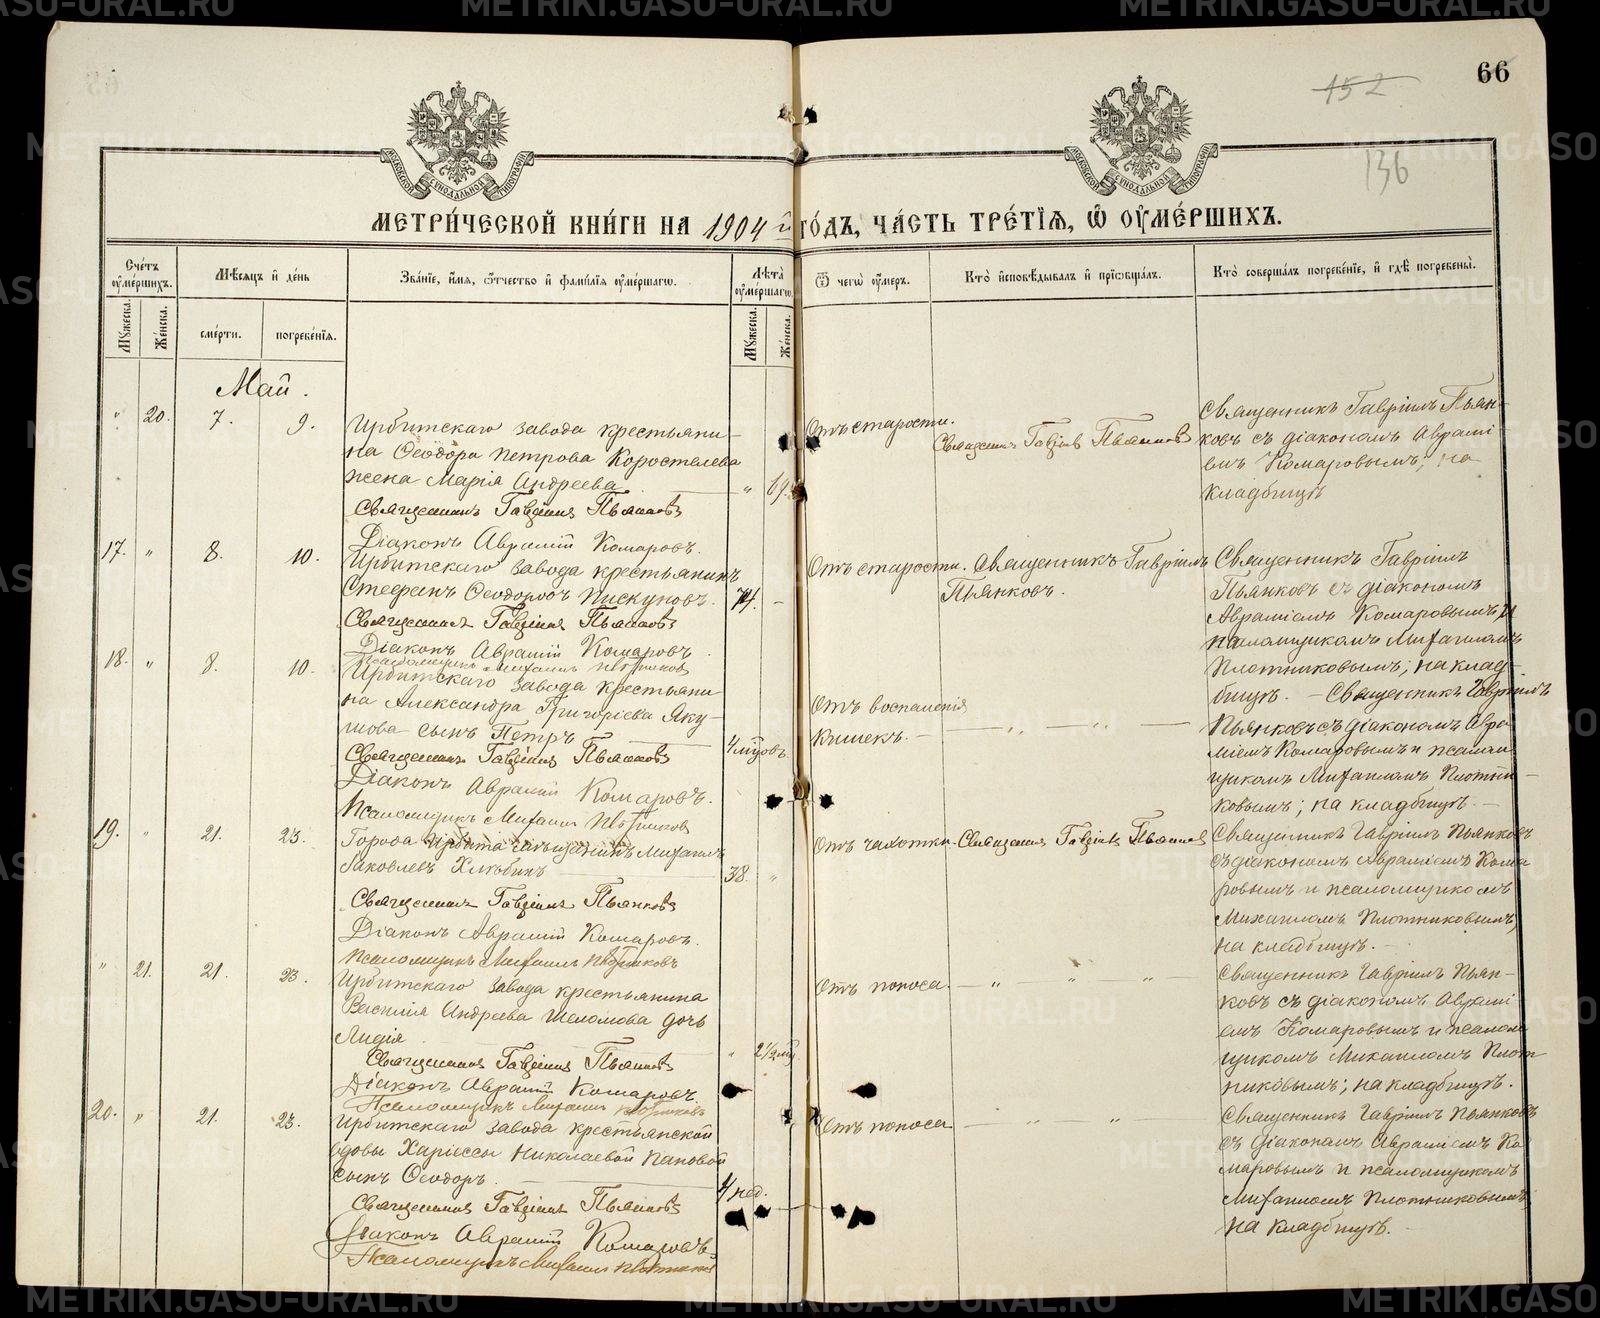 66
152
136
МОСКОВСКОЙ СѴНОДАЛЬНОЙ ТИПОГРАФІИ
МОСКОВСКОЙ СѴНОДАЛЬНОЙ ТИПОГРАФІИ
МЕТРИ́ЧЕСКОЙ КНИ́ГИ НА 1904 й ГО́ДЪ, ЧА́СТЬ ТРЕ́ТІѦ, Ѡ҆ ОУ҆МЕ́РШИХЪ.
Сче́тъ оу҆ме́ршихъ.
Мꙋ́жеска.
Же́нска.
Мѣ́сяцъ и҆ де́нь
сме́рти.
погребе́нїѧ.
Зва́нїе, и҆́мѧ, ѻ҆́тчество и҆ фами́лїѧ оу҆ме́ршагѡ.
Лѣ́та оу҆ме́ршагѡ.
Мꙋ́жеска.
Же́нска.
Ѿ чегѡ̀ оу҆́меръ.
Кто̀ и҆сповѣ́дывалъ и҆ прїѡбща́лъ.
Кто̀ соверша́лъ погребе́нїе, и҆ гдѣ̀ погребены̀.
Май.
" 20. 7. 9.
Ирбитскаго завода крестьяни-
на Ѳеодора Петрова Коростелева
жена Марія Андреева " 69.
Священникъ Гавріилъ Пьянковъ
Діаконъ Аврамій Комаровъ.
Отъ старости.
Священникъ Гавріилъ Пьянковъ
Священникъ Гавріилъ Пьян-
ковъ съ діакономъ Авраміе-
емъ Комаровымъ; на
кладбищѣ
17. " 8. 10.
Ирбитскаго завода крестьянинъ
Стефанъ Ѳеодоровъ Пискуновъ. 74. -
Священникъ Гавріилъ Пьянковъ
Діаконъ Аврамій Комаровъ.
Псаломщикъ Михаилъ Плотниковъ
Отъ старости.
Священникъ Гавріилъ
Пьянковъ.
Священникъ Гавріилъ
Пьянковъ съ діакономъ
Авраміемъ Комаровымъ и
псаломщикомъ Михаиломъ
Плотниковымъ; на клад-
бищѣ.
18. " 8. 10.
Ирбитскаго завода крестьяни-
на Александра Григоріева Яку-
шова сынъ Петръ 4 мѣсяцовъ
Священникъ Гавріилъ Пьянковъ
Діаконъ Аврамій Комаровъ.
Псаломщикъ Михаилъ Плотниковъ
Отъ воспаленія
кишекъ. - " - " -
Священникъ Гавріилъ
Пьянковъ съ діакономъ Авра-
міемъ Комаровымъ и псалом-
щикомъ Михаиломъ Плотни-
ковымъ; на кладбищѣ. -
19. " 21. 23.
Города Ирбита мѣщанинъ Михаилъ
Іаковлевъ Хлюбинъ 38. "
Священникъ Гавріилъ Пьянковъ
Діаконъ Аврамій Комаровъ.
Псаломщикъ Михаилъ Плотниковъ
Отъ чахотки.
Священникъ Гавріилъ Пьянковъ
Священникъ Гавріилъ Пьянковъ
съ діакономъ Авраміемъ Кома-
ровымъ и псаломщикомъ
Михаиломъ Плотниковымъ;
на кладбищѣ. -
" 21. 21. 23.
Ирбитскаго завода крестьянина
Василія Андреева Шеломова дочь
Лидія " 2½ мѣ.
Священникъ Гавріилъ Пьянковъ
Діаконъ Аврамій Комаровъ
Псаломщикъ Михаилъ Плотниковъ
Отъ поноса. - " " " -
Священникъ Гавріилъ Пьян-
ковъ съ діакономъ Аврамі-
емъ Комаровымъ и псалом-
щикомъ Михаиломъ Плот-
никовымъ; на кладбищѣ.
20. " 21. 23.
Ирбитскаго завода крестьянской
вдовы Харіессы Николаевой Пановой
сынъ Ѳеодоръ. 4 нед.
Священникъ Гавріилъ Пьянковъ
Діаконъ Аврамій Комаровъ.
Псаломщикъ Михаилъ Плотниковъ
Отъ поноса - " "
Священникъ Гавріилъ Пьянковъ
съ діакономъ Авраміемъ Ко-
маровымъ и псаломщикомъ
Михаиломъ Плотниковымъ
на кладбищѣ. -
METRIKI.GASU-URAL.RU